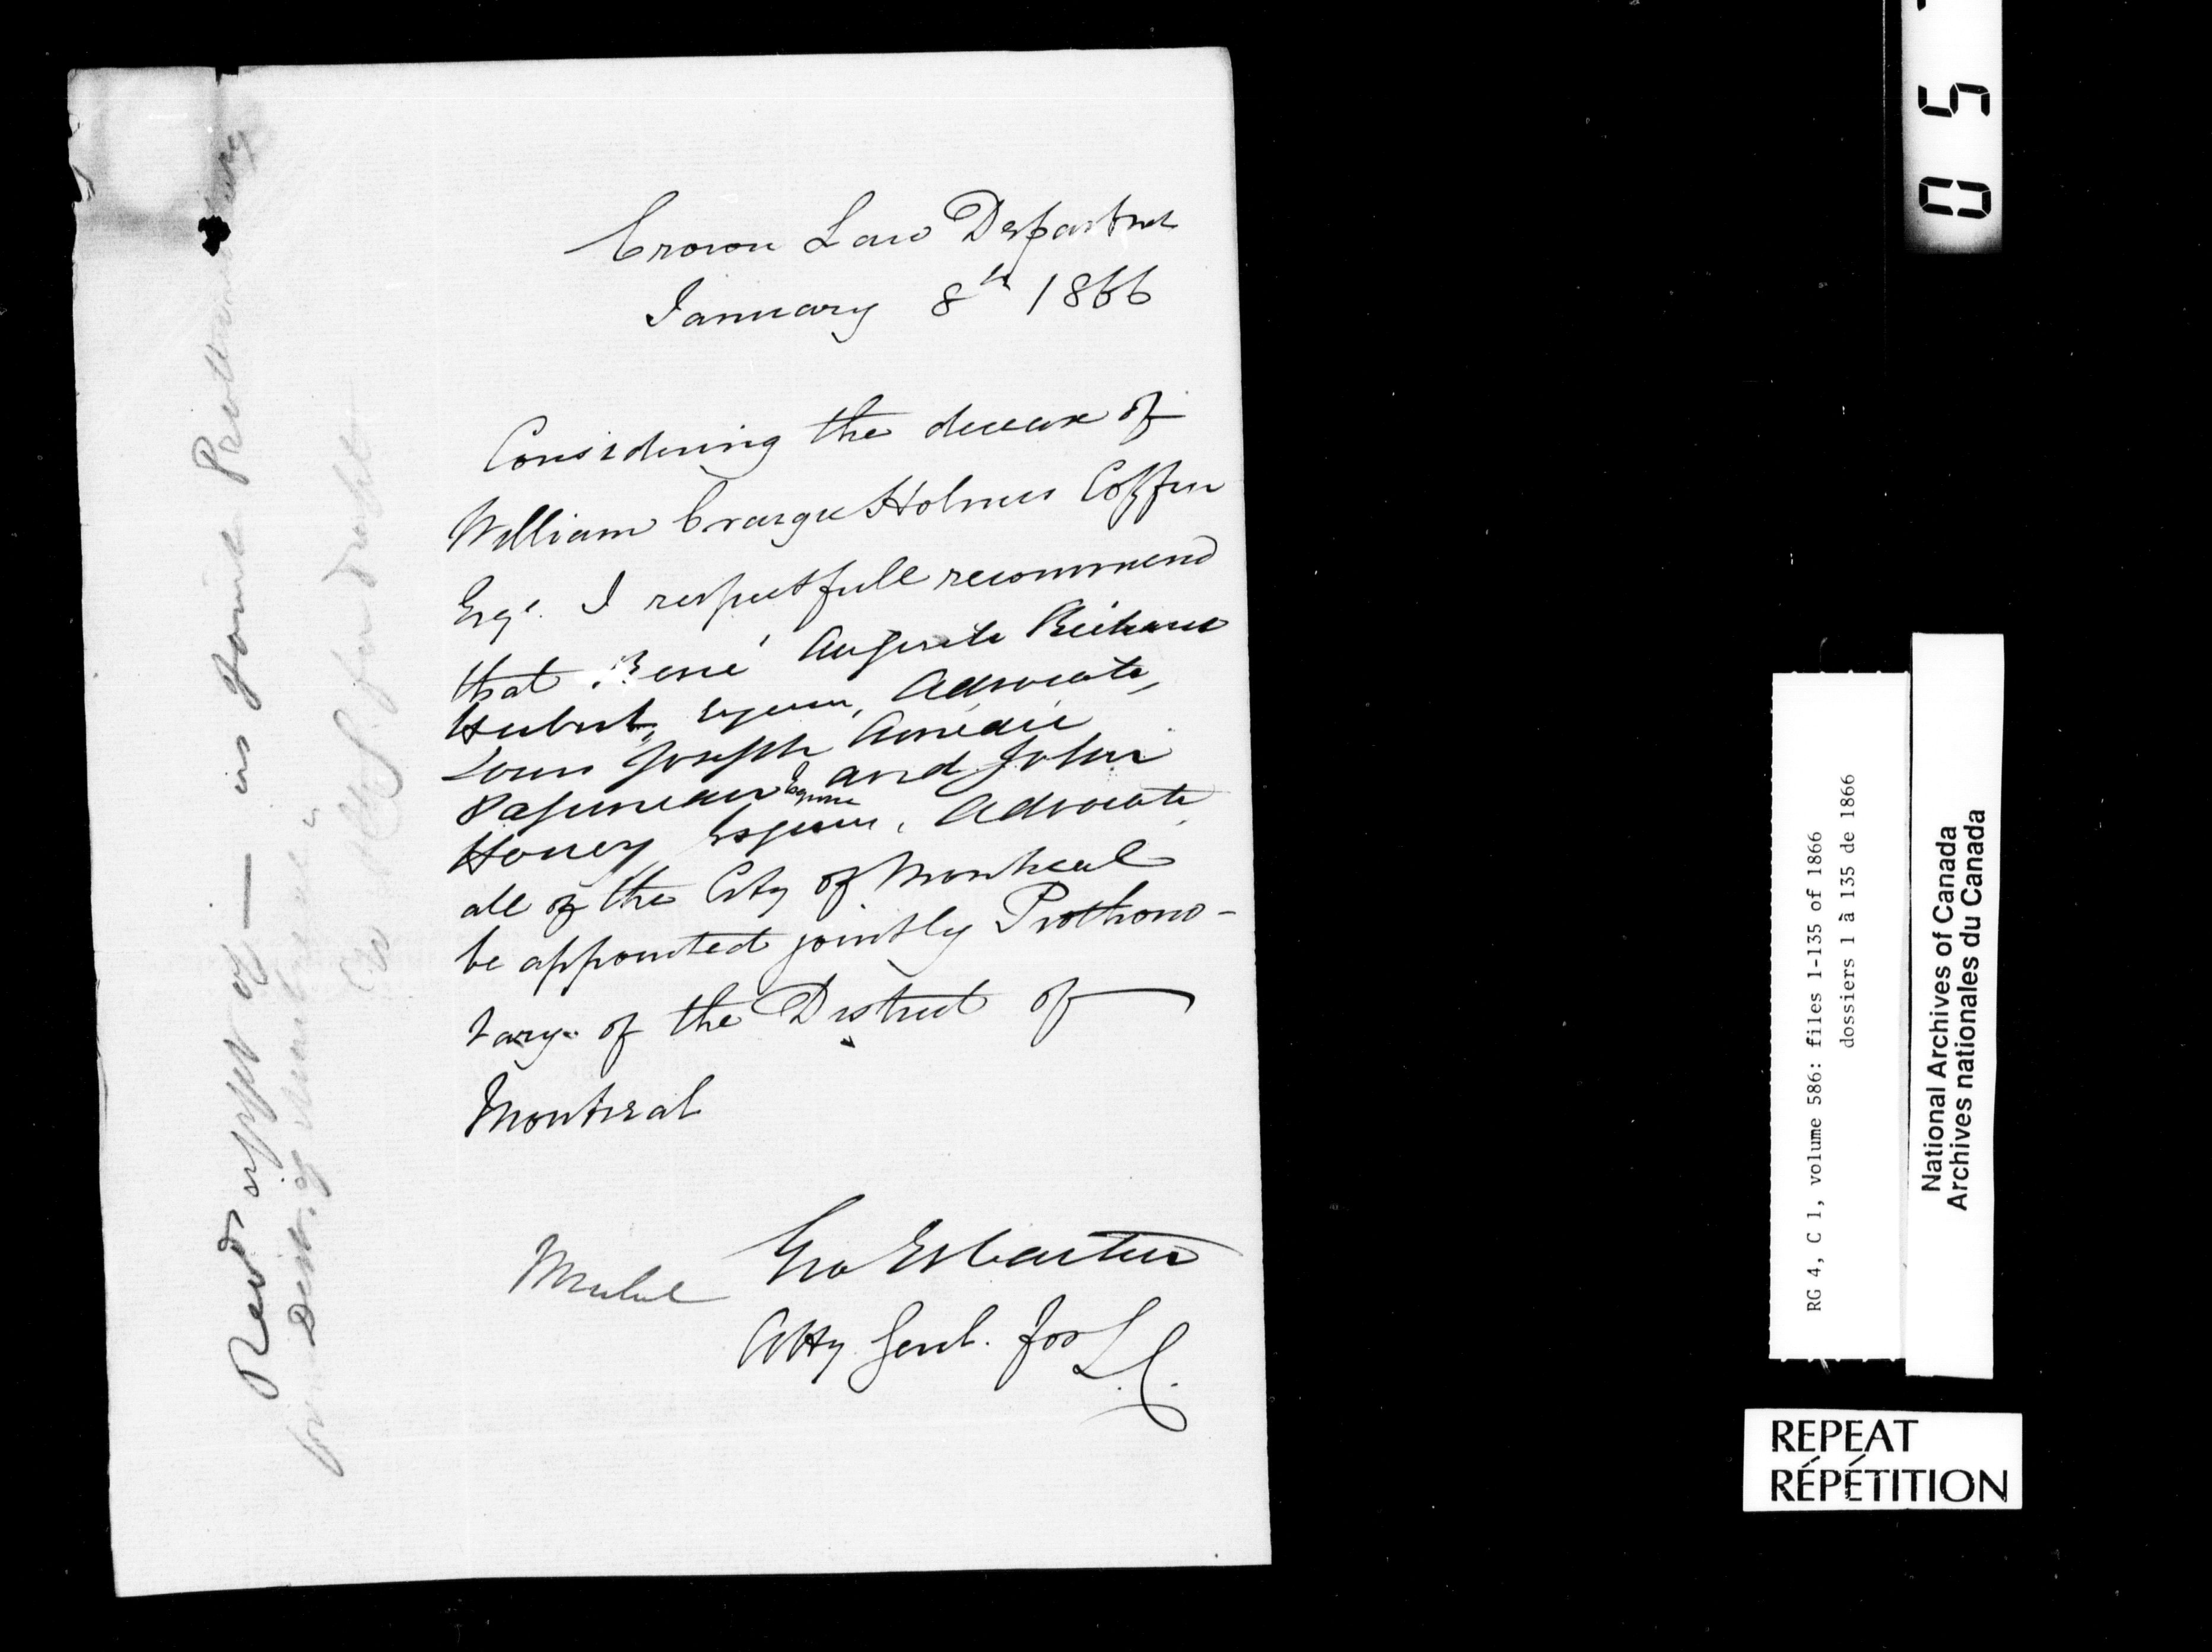 Crown Law Departmt
January 8th 1866
Considering the decease of
William Craigie Holmes Coffin
Esqr. I respectfull recommend
that René Auguste Richard
Hubert, Esquire, Advocate,
Louis Joseph Amédée
Papineau Esquire and John
Honey, Esquire, Advocate,
all of the City of Montreal
be appointed jointly Prothono-
tary of the District of
Montreal
Geo Et Cartier
Atty Genl. for L.C.
Recd appt of — as Joint Prothonotary
for Dist. of Montreal
05
RG 4, C 1, volume 586: files 1-135 of 1866
dossiers 1 à 135 de 1866
National Archives of Canada
Archives nationales du Canada
REPEAT
RÉPÉTITION